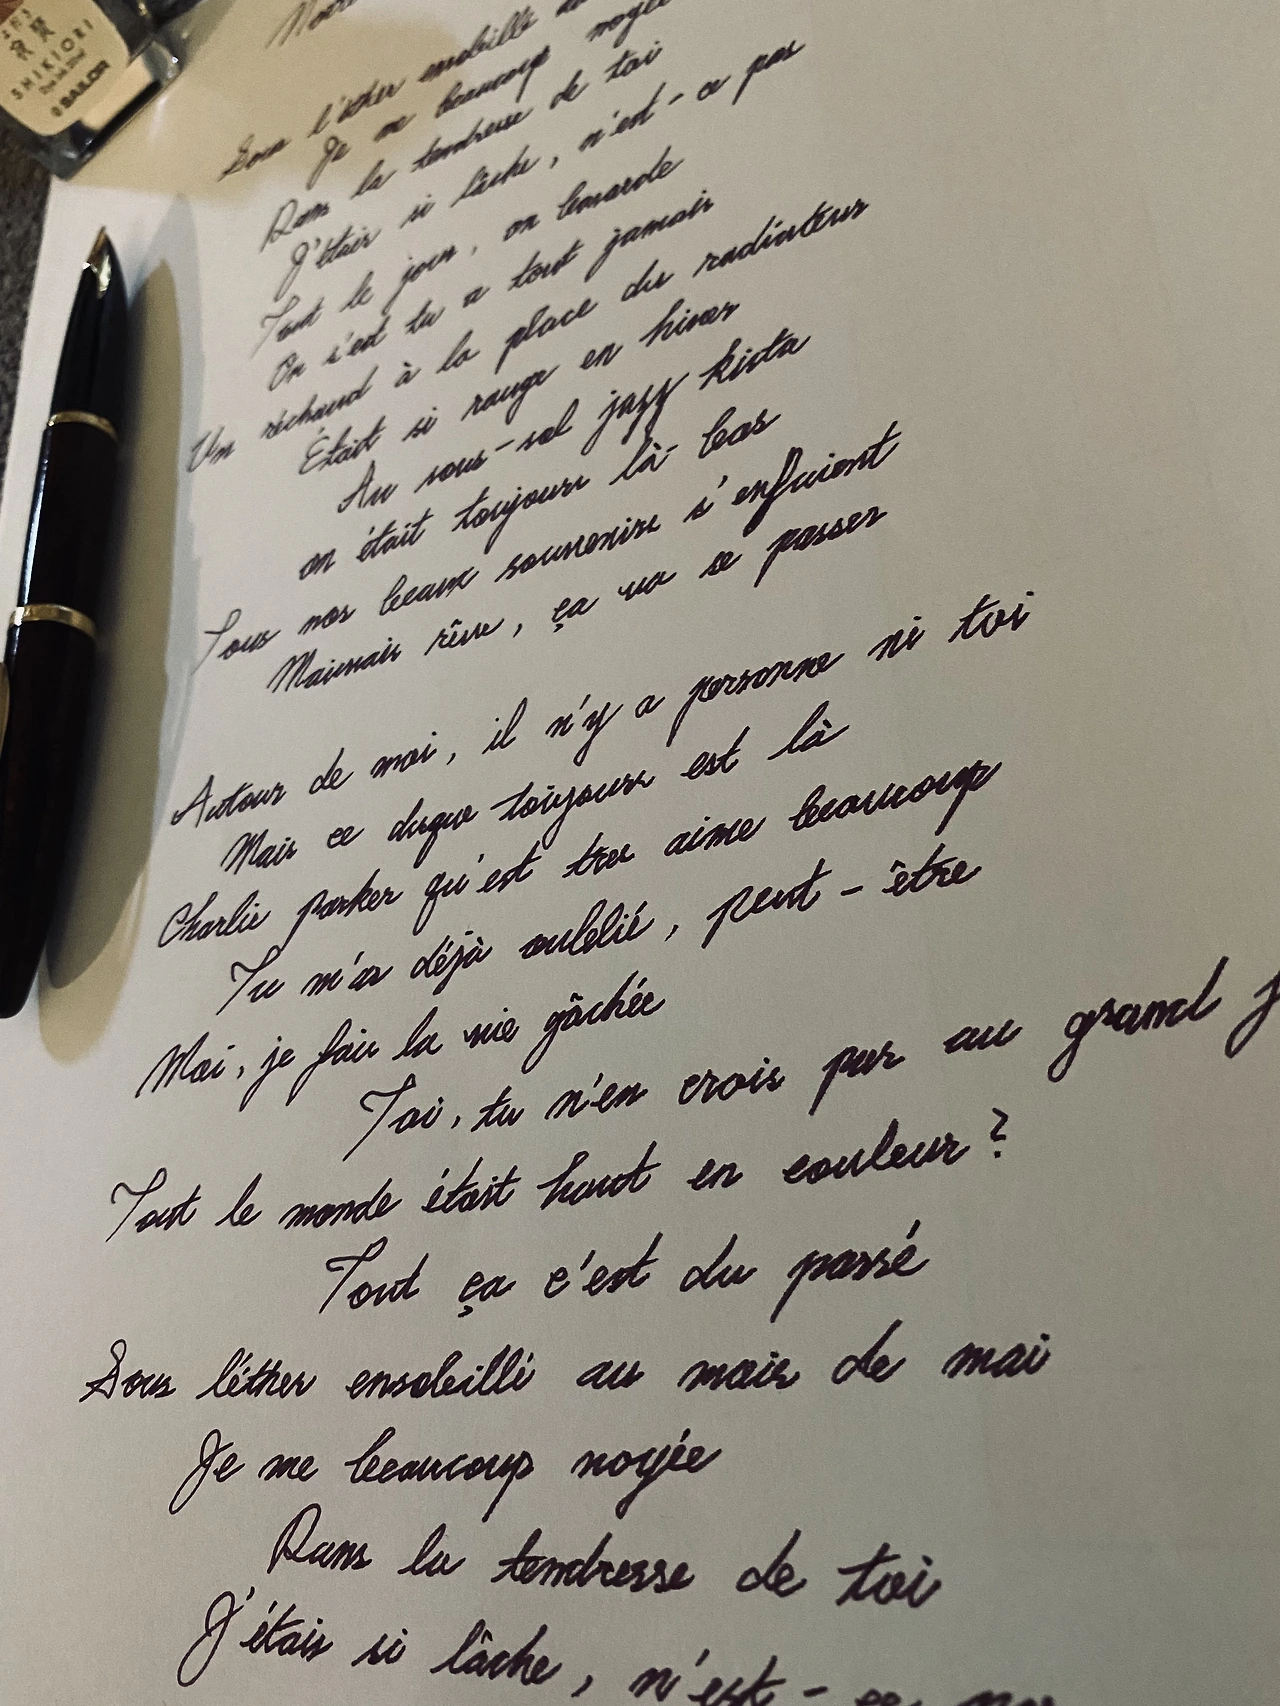 四季織
SHIKIORI
SAILOR
Sous l'éther ensoleillé au
Je me beaucoup noyée
Dans la tendresse de toi
J'étais si lâche, n'est-ce pas
Tout le jour, on bavarde
On s'est tu a tout jamais
Un réchaud à la place du radiateur
Était si rouge en hiver
Au sous-sol jazz kista
on était toujours là-bas
Tous nos beaux souvenirs s'enfuient
Mauvais rêve, ça va se passer
Autour de moi, il n'y a personne ni toi
Mais ce duquo toujours est là
Charlie Parker qu'est tres aime beaucoup
Tu m'as déjà oublié, peut-être
Moi, je fais la vie gâchée
Toi, tu n'en crois pas au grand j
Tout le monde était haut en couleur?
Tout ça c'est du passé
Sous l'éther ensoleillé au mois de mai
Je me beaucoup noyée
Dans la tendresse de toi
J'étais si lâche, n'est-ce pas